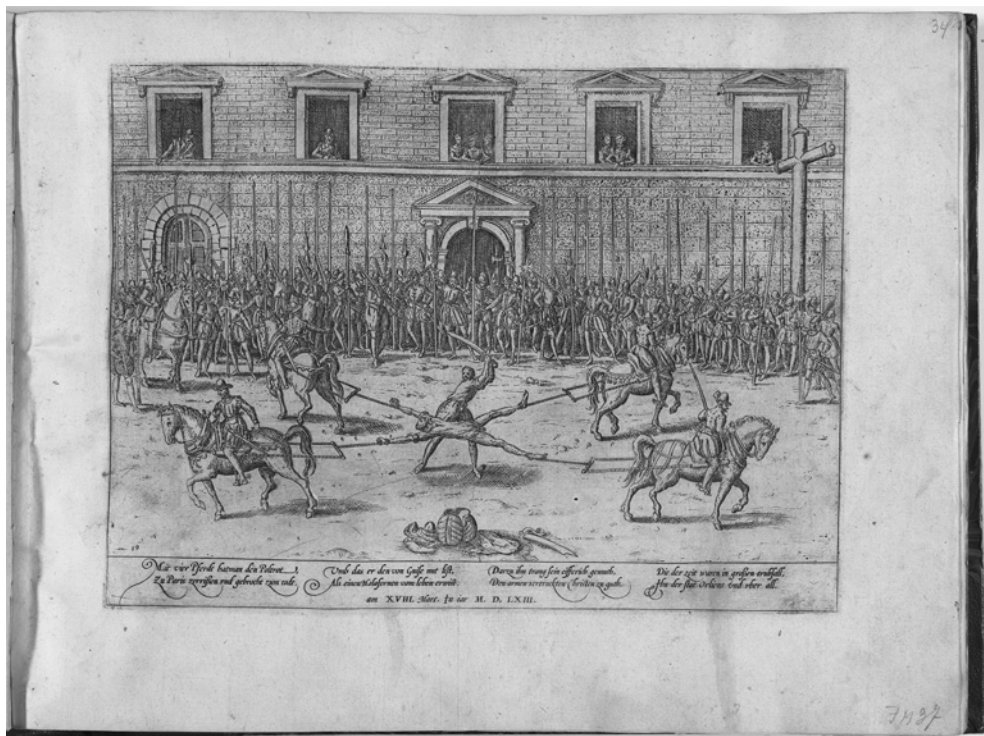 34
Mit vier Pferde hat man den Poltrot
Zu Paris zerrissen und gebrocht zum todt,
Umb das er den von Guise mit list,
Als einen Holofernem vom leben erwist
Darzu ihn trang sein eifferich gemuth,
Den armen verdruckten Christen zu guth.
Die der zeit waren in grossen trubsall,
Inn der stat Orliens und uber all.
am XVIII. Mart. Im iar M. D. LXIII.